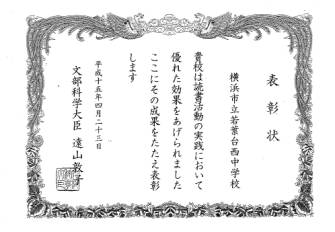 表彰状
横浜市立若葉台西中学校
貴校は読書活動の実践において
優れた効果をあげられました
ここにその成果をたたえ表彰
します
平成十五年四月二十三日
文部科学大臣 遠山敦子